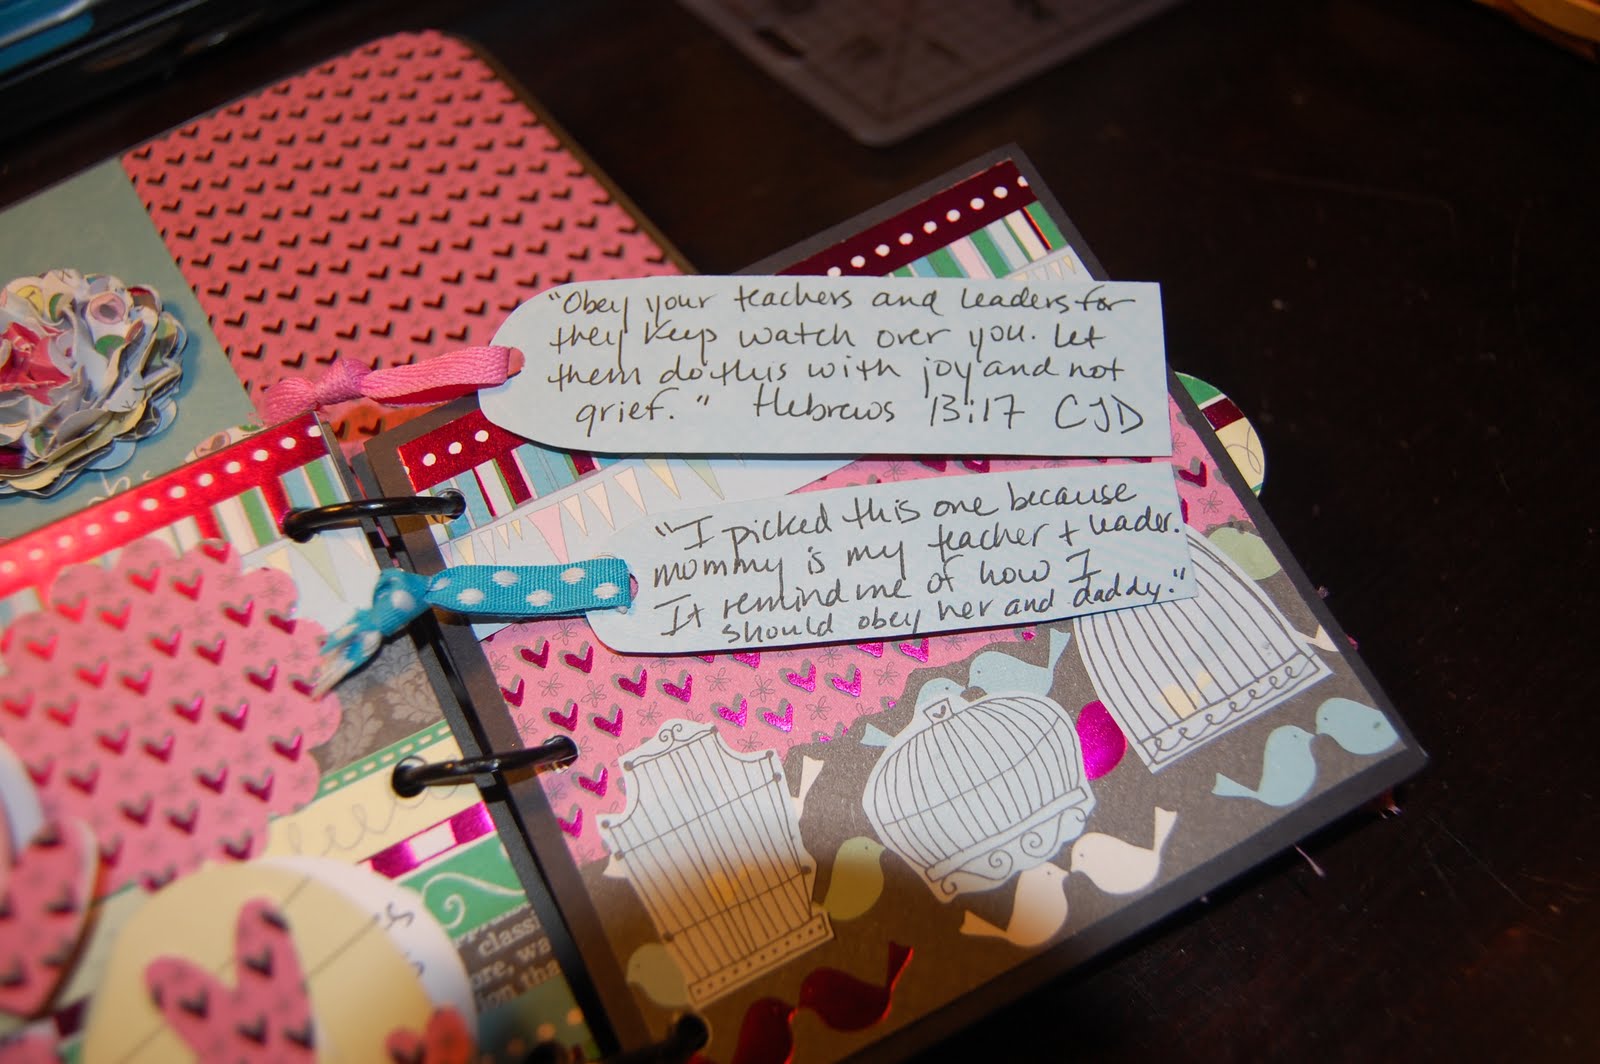 "Obey your teachers and leaders for
they keep watch over you. Let
them do this with joy and not
grief." Hebrews 13:17 CJD
"I picked this one because
mommy is my teacher + leader.
It remind me of how I
should obey her and daddy."
classi
ore, wa
tion tha